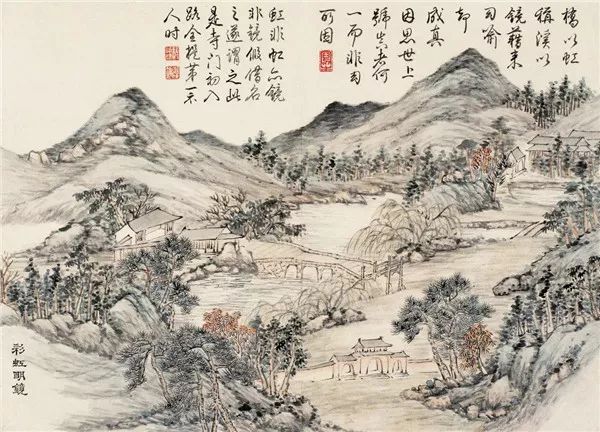 橋以虹
稱溪以
鏡藉來
司喻
却
成真
因思世上
號何
一而非司
可因
虹非虹亦鏡
非鏡假借名
之遂謂之此
是寺門初入
路全提第一
人时
彩虹明鏡